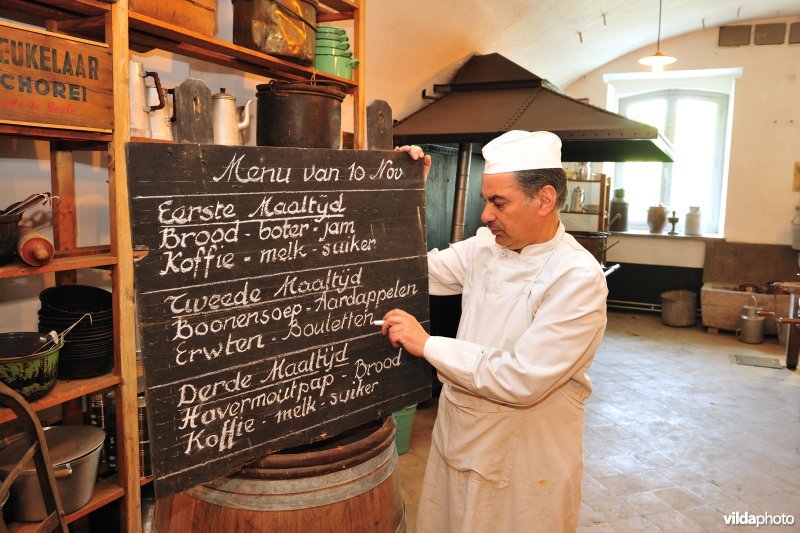 EUKELAAR
CHOREI
Menu van 10 Nov
Eerste Maaltijd
Brood - boter - jam
Koffie - melk - suiker
Tweede Maaltijd
Boonensoep - Aardappelen
Erwten - Bouletten
Derde Maaltijd
Havermoutpap - Brood
Koffie - melk - suiker
vildaphoto